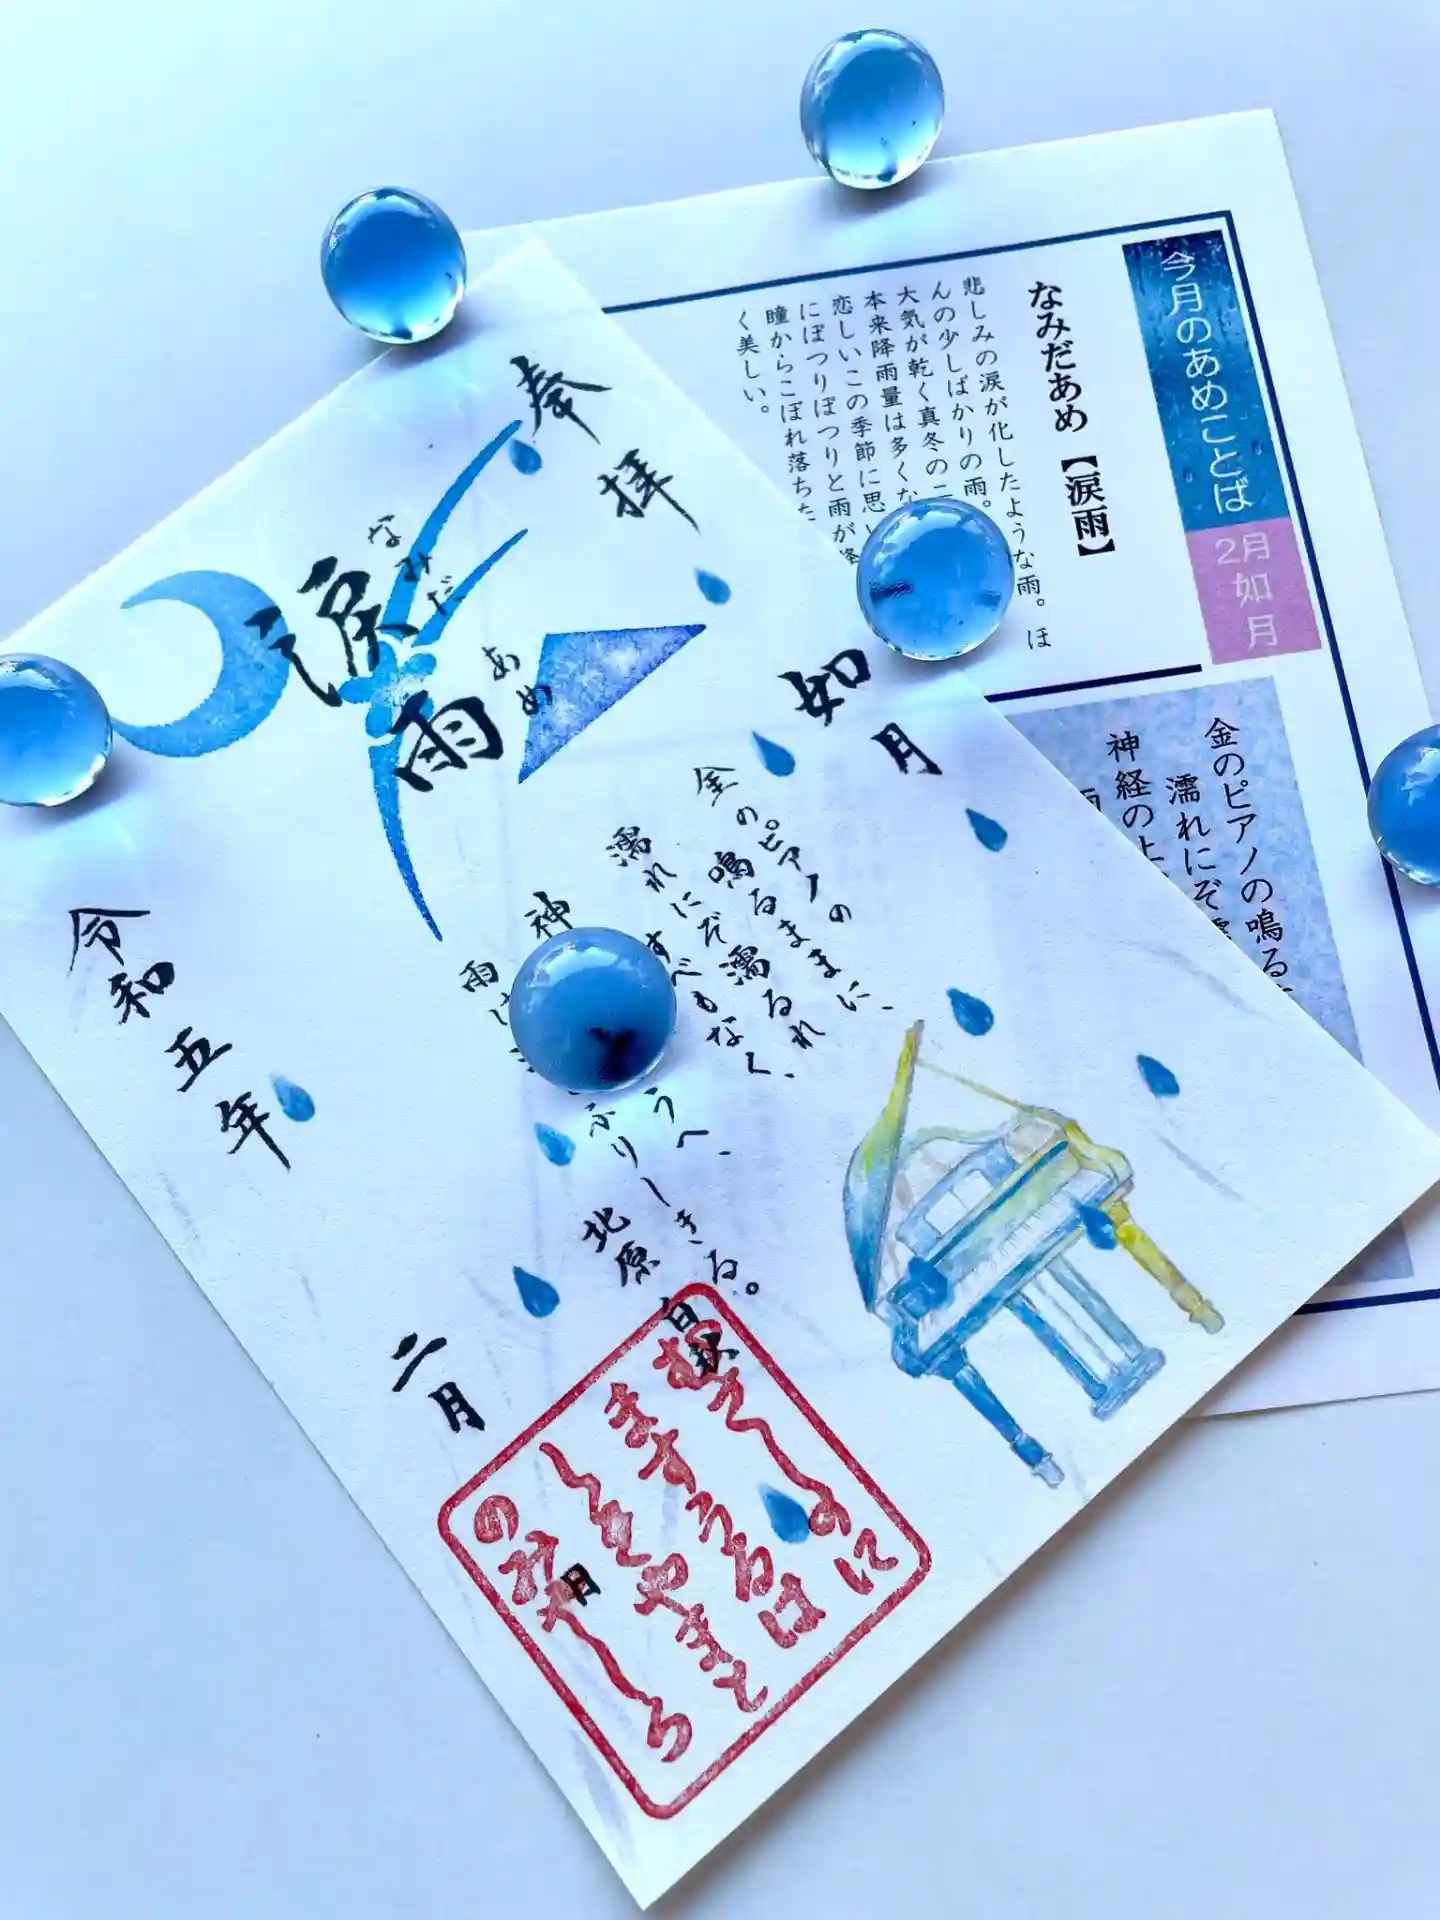 今月のあめことば
2月
如月
なみだあめ【涙雨】
悲しみの涙が化したような雨。ほ
んの少しばかりの雨。
大気が乾く真冬の二
本来降雨量は多くな
恋しいこの季節に思い
にぽつりぽつりと雨が
瞳からこぼれ落ちた
く美しい。
金のピアノの鳴る
濡れにぞ
神経の上
奉拝
なみだ
涙
あめ
雨
如月
金のピアノの
鳴るままに、
濡れにぞ濡るれ、
すべもなく、
神
うへ、
雨は
ふりしきる。
北原白秋
令和五年
二月
月
ましますうるは
しきやまと
のみやしろ